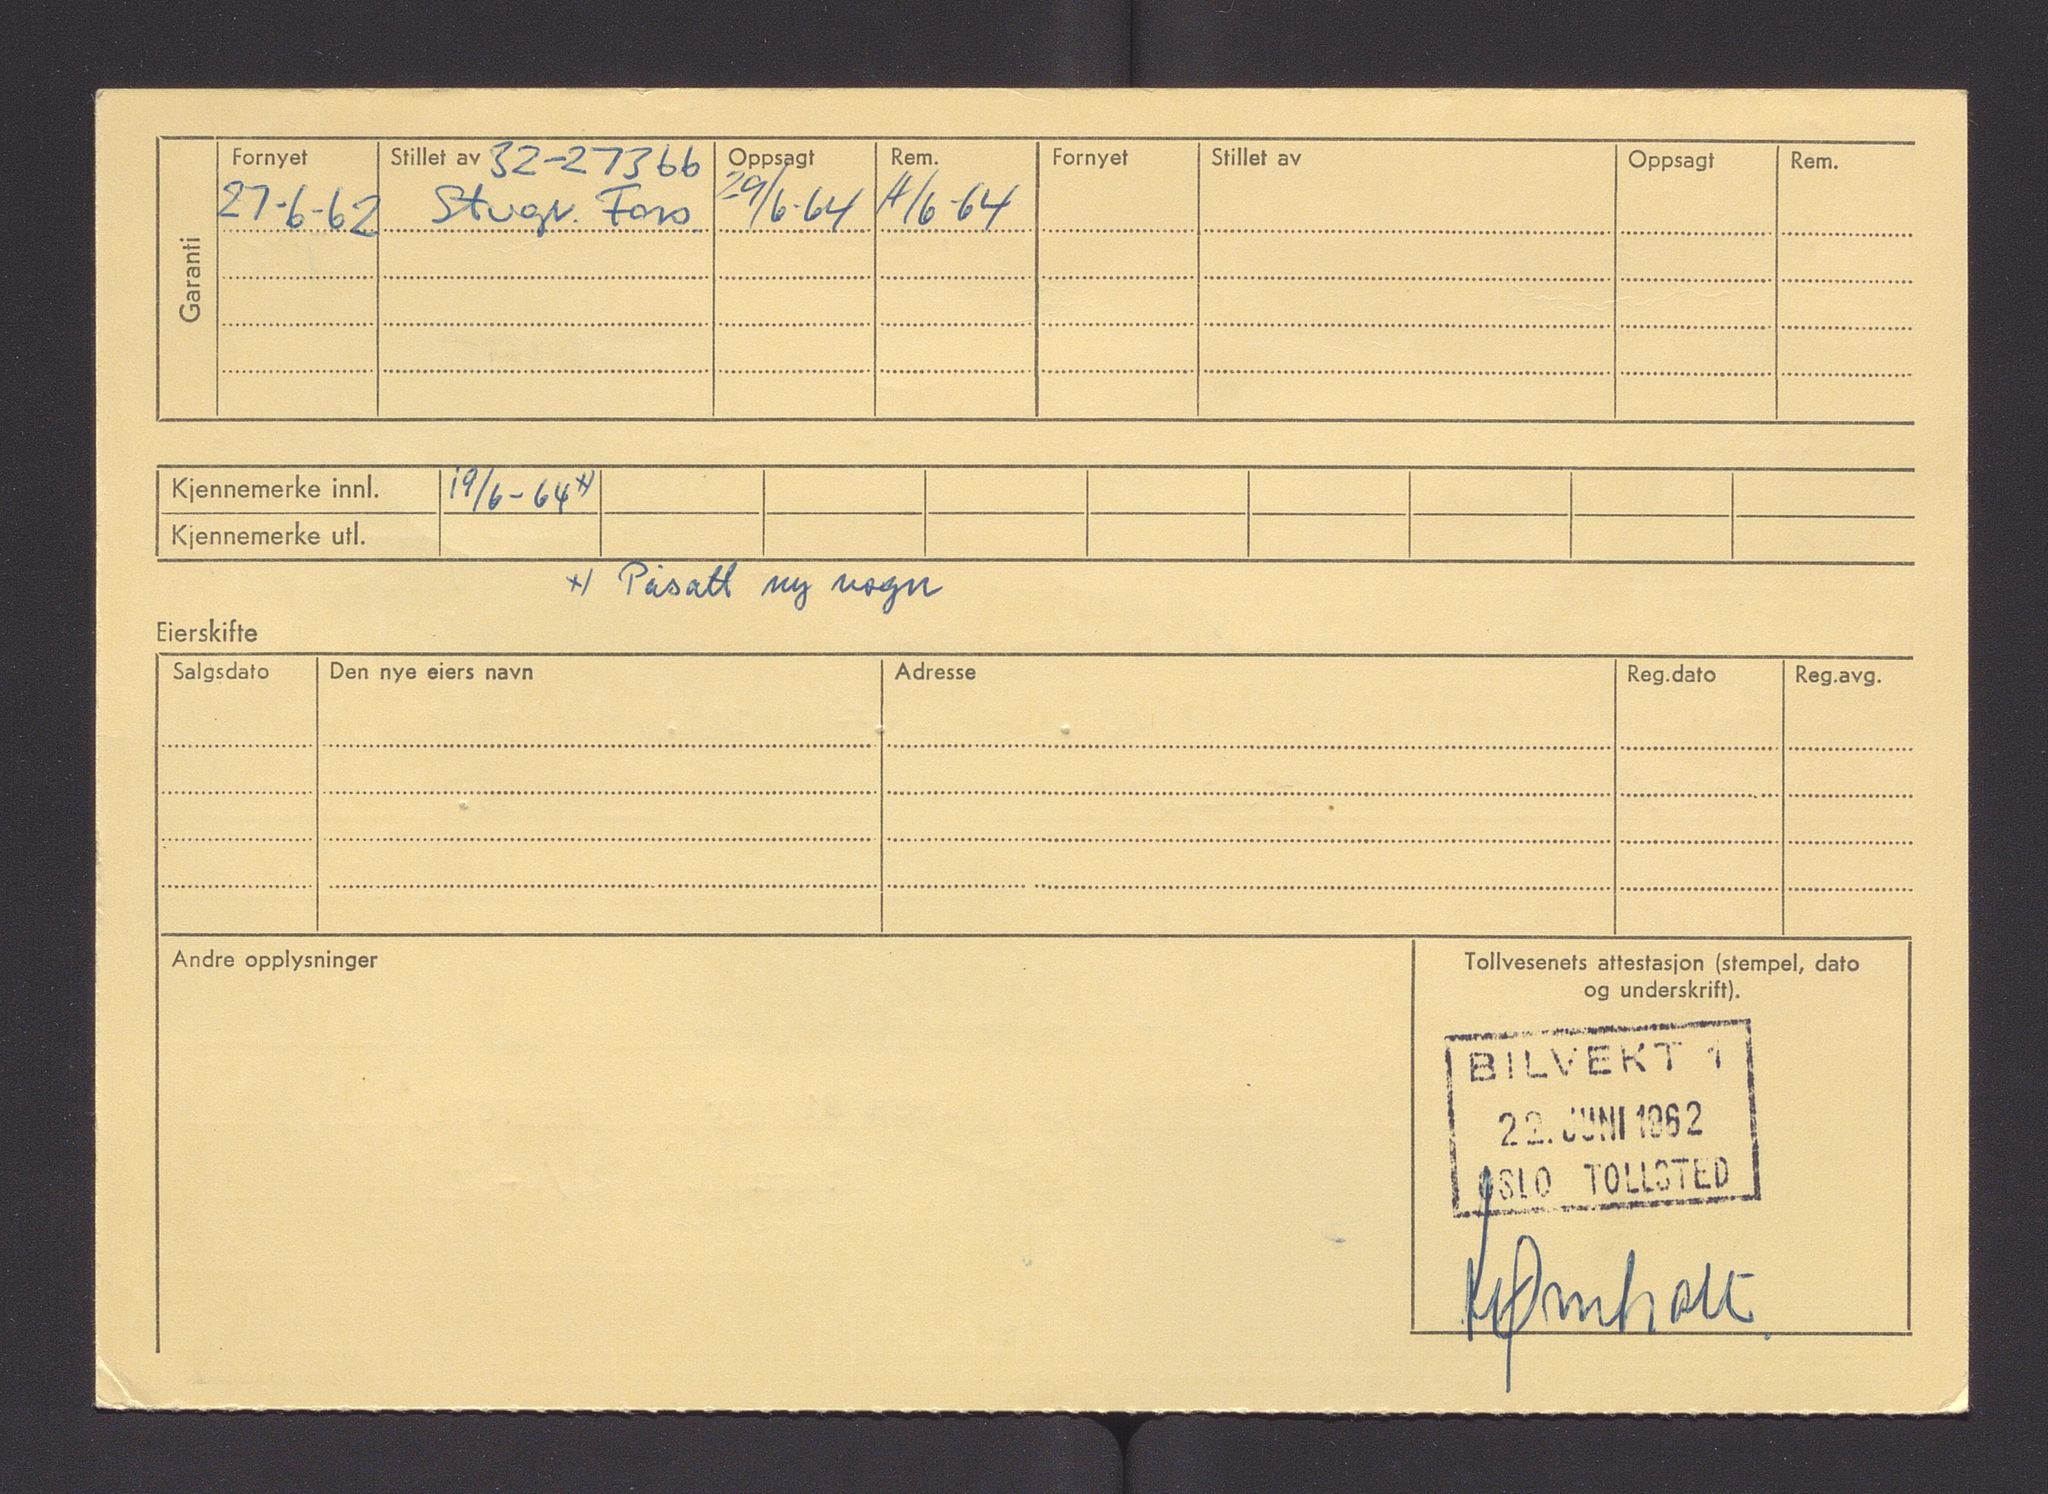 Garanti
Fornyet Stillet av 32-27366 Oppsagt Rem. Fornyet Stillet av Oppsagt Rem.
27-6-62 Stvgr. 29/6-64 /6-64
Kjennemerke innl. 19/6-64 x)
Kjennemerke utl.
x) Påsatt ny vogn
Eierskifte
Salgsdato Den nye eiers navn Adresse Reg.dato Reg.avg.
Andre opplysninger
Tollvesenets attestasjon (stempel, dato
og underskrift).
BILVEKT 1
22. JUNI 1962
OSLO TOLLSTED